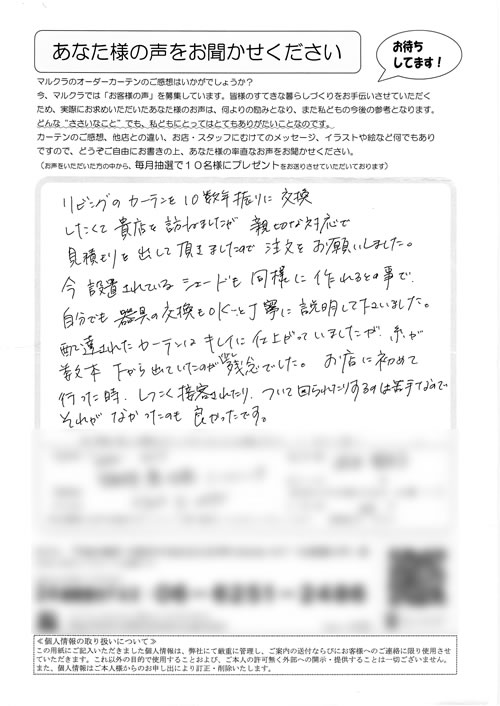 あなた様の声をお聞かせください
お待ち
してます！
マルクラのオーダーカーテンのご感想はいかがでしょうか？
今、マルクラでは「お客様の声」を募集しています。皆様のすてきな暮らしづくりをお手伝いさせていただく
ため、実際にお求めいただいたあなた様のお声は、何よりの励みとなり、また私どもの今後の参考となります。
どんな“ささいなこと”でも、私どもにとってはとてもありがたいことなのです。
カーテンのご感想、他店との違い、お店・スタッフにむけてのメッセージ、イラストや絵など何でもあり
ますので、どうぞご自由にお書きの上、あなた様の率直なお声をお聞かせください。
（お声をいただいた方の中から、毎月抽選で１０名様にプレゼントをお送りさせていただいております）
リビングのカーテンを10数年振りに交換
したくて貴店を訪ねましたが 親切な対応で
見積もりを出して頂きましたので注文をお願いしました。
今設置されているシェードも同様に作れるとの事で、
自分でも器具の交換もOKと丁寧に説明して下さいました。
配達されたカーテンはキレイに仕上がっていましたが、糸が
数本下から出ていたのが少し残念でした。お店に初めて
行った時、しつこく接客されたり、ついて回られたりするのは苦手なので
それがなかったのも良かったです。
≪個人情報の取り扱いについて≫
この用紙にご記入いただきました個人情報は、弊社にて厳重に管理し、ご案内の送付ならびにお客様へのご連絡に限り使用させ
ていただきます。これ以外の目的で使用することおよび、ご本人の許可無く外部への開示・提供することは一切ございません。
また、個人情報はご本人様からのお申し出により訂正・削除いたします。